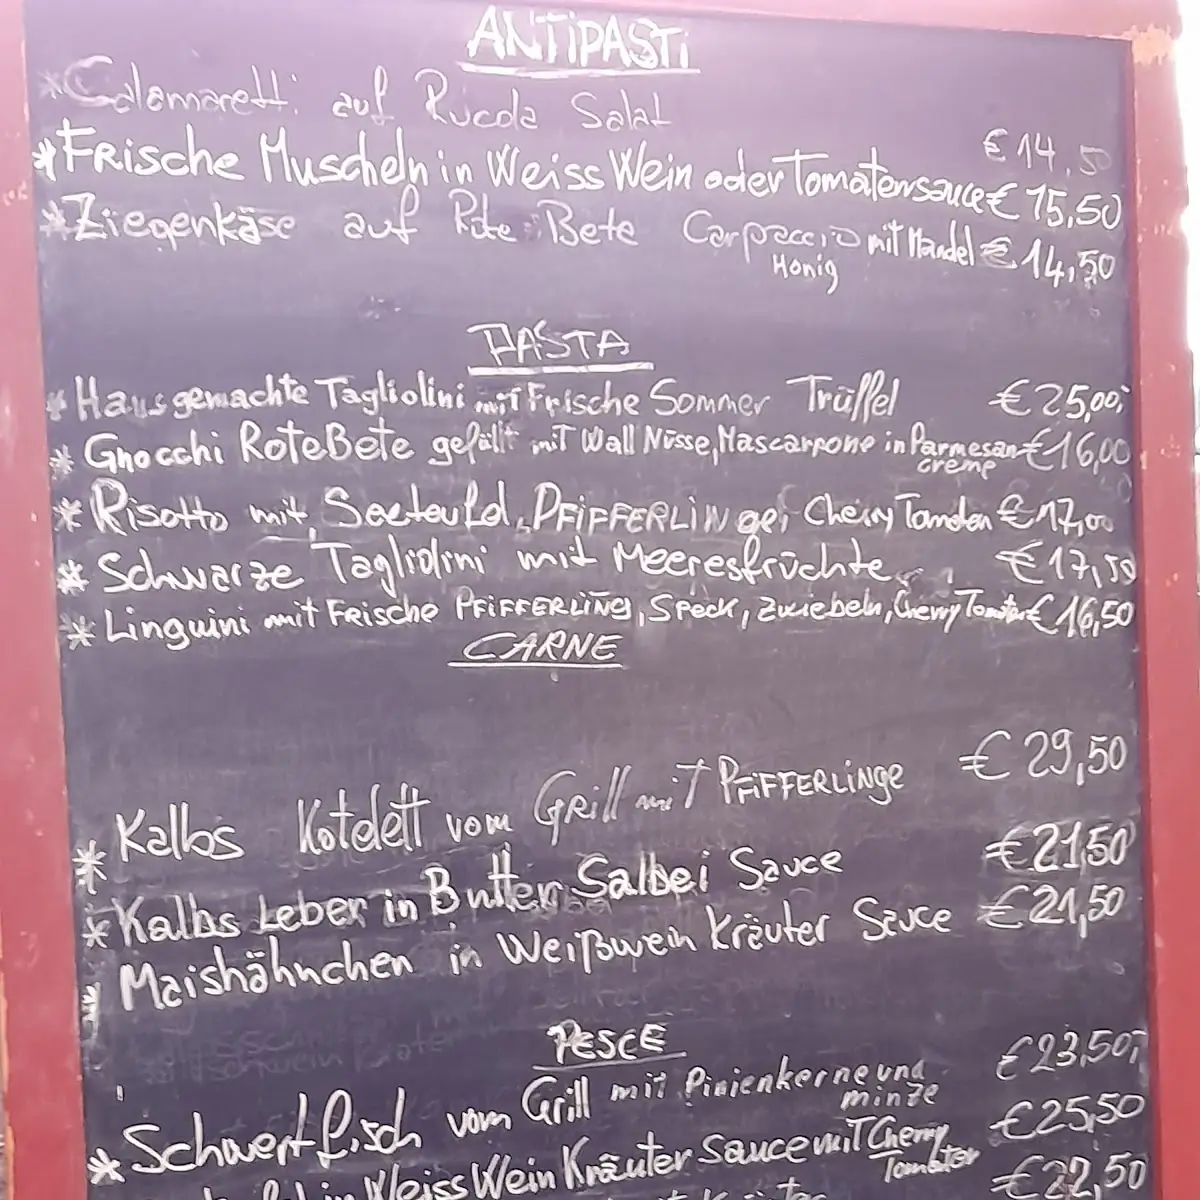 ANTIPASTI
*Calamaretti auf Rucola Salat € 14,50
*Frische Muscheln in Weiss Wein oder Tomatensauce € 15,50
*Ziegenkäse auf Rote Bete Carpaccio mit Mandel € 14,50
Honig
PASTA
* Hausgemachte Tagliolini mit Frische Sommer Trüffel € 25,00,-
* Gnocchi Rote Bete gefüllt mit Wall Nüsse, Mascarpone in Parmesan € 16,00
creme
* Risotto mit Seeteufel, PFIFFERLINge, Cherry Tomaten € 17,00
* Schwarze Tagliolini mit Meeresfrüchte € 17,50
* Linguini mit Frische PFIFFERLING, Speck, Zwiebeln, Cherry Tomaten € 16,50
CARNE
* Kalbs Kotelett vom Grill mit PFIFFERLINge € 29,50
* Kalbs Leber in Butter Salbei Sauce € 21,50
* Maishähnchen in Weißwein Kräuter Sauce € 21,50
PESCE
* Schwertfisch vom Grill mit Pinienkerne und € 23,50,-
minze
in Weiss Wein Kräuter Sauce mit Cherry € 25,50
Tomaten
€ 22,50